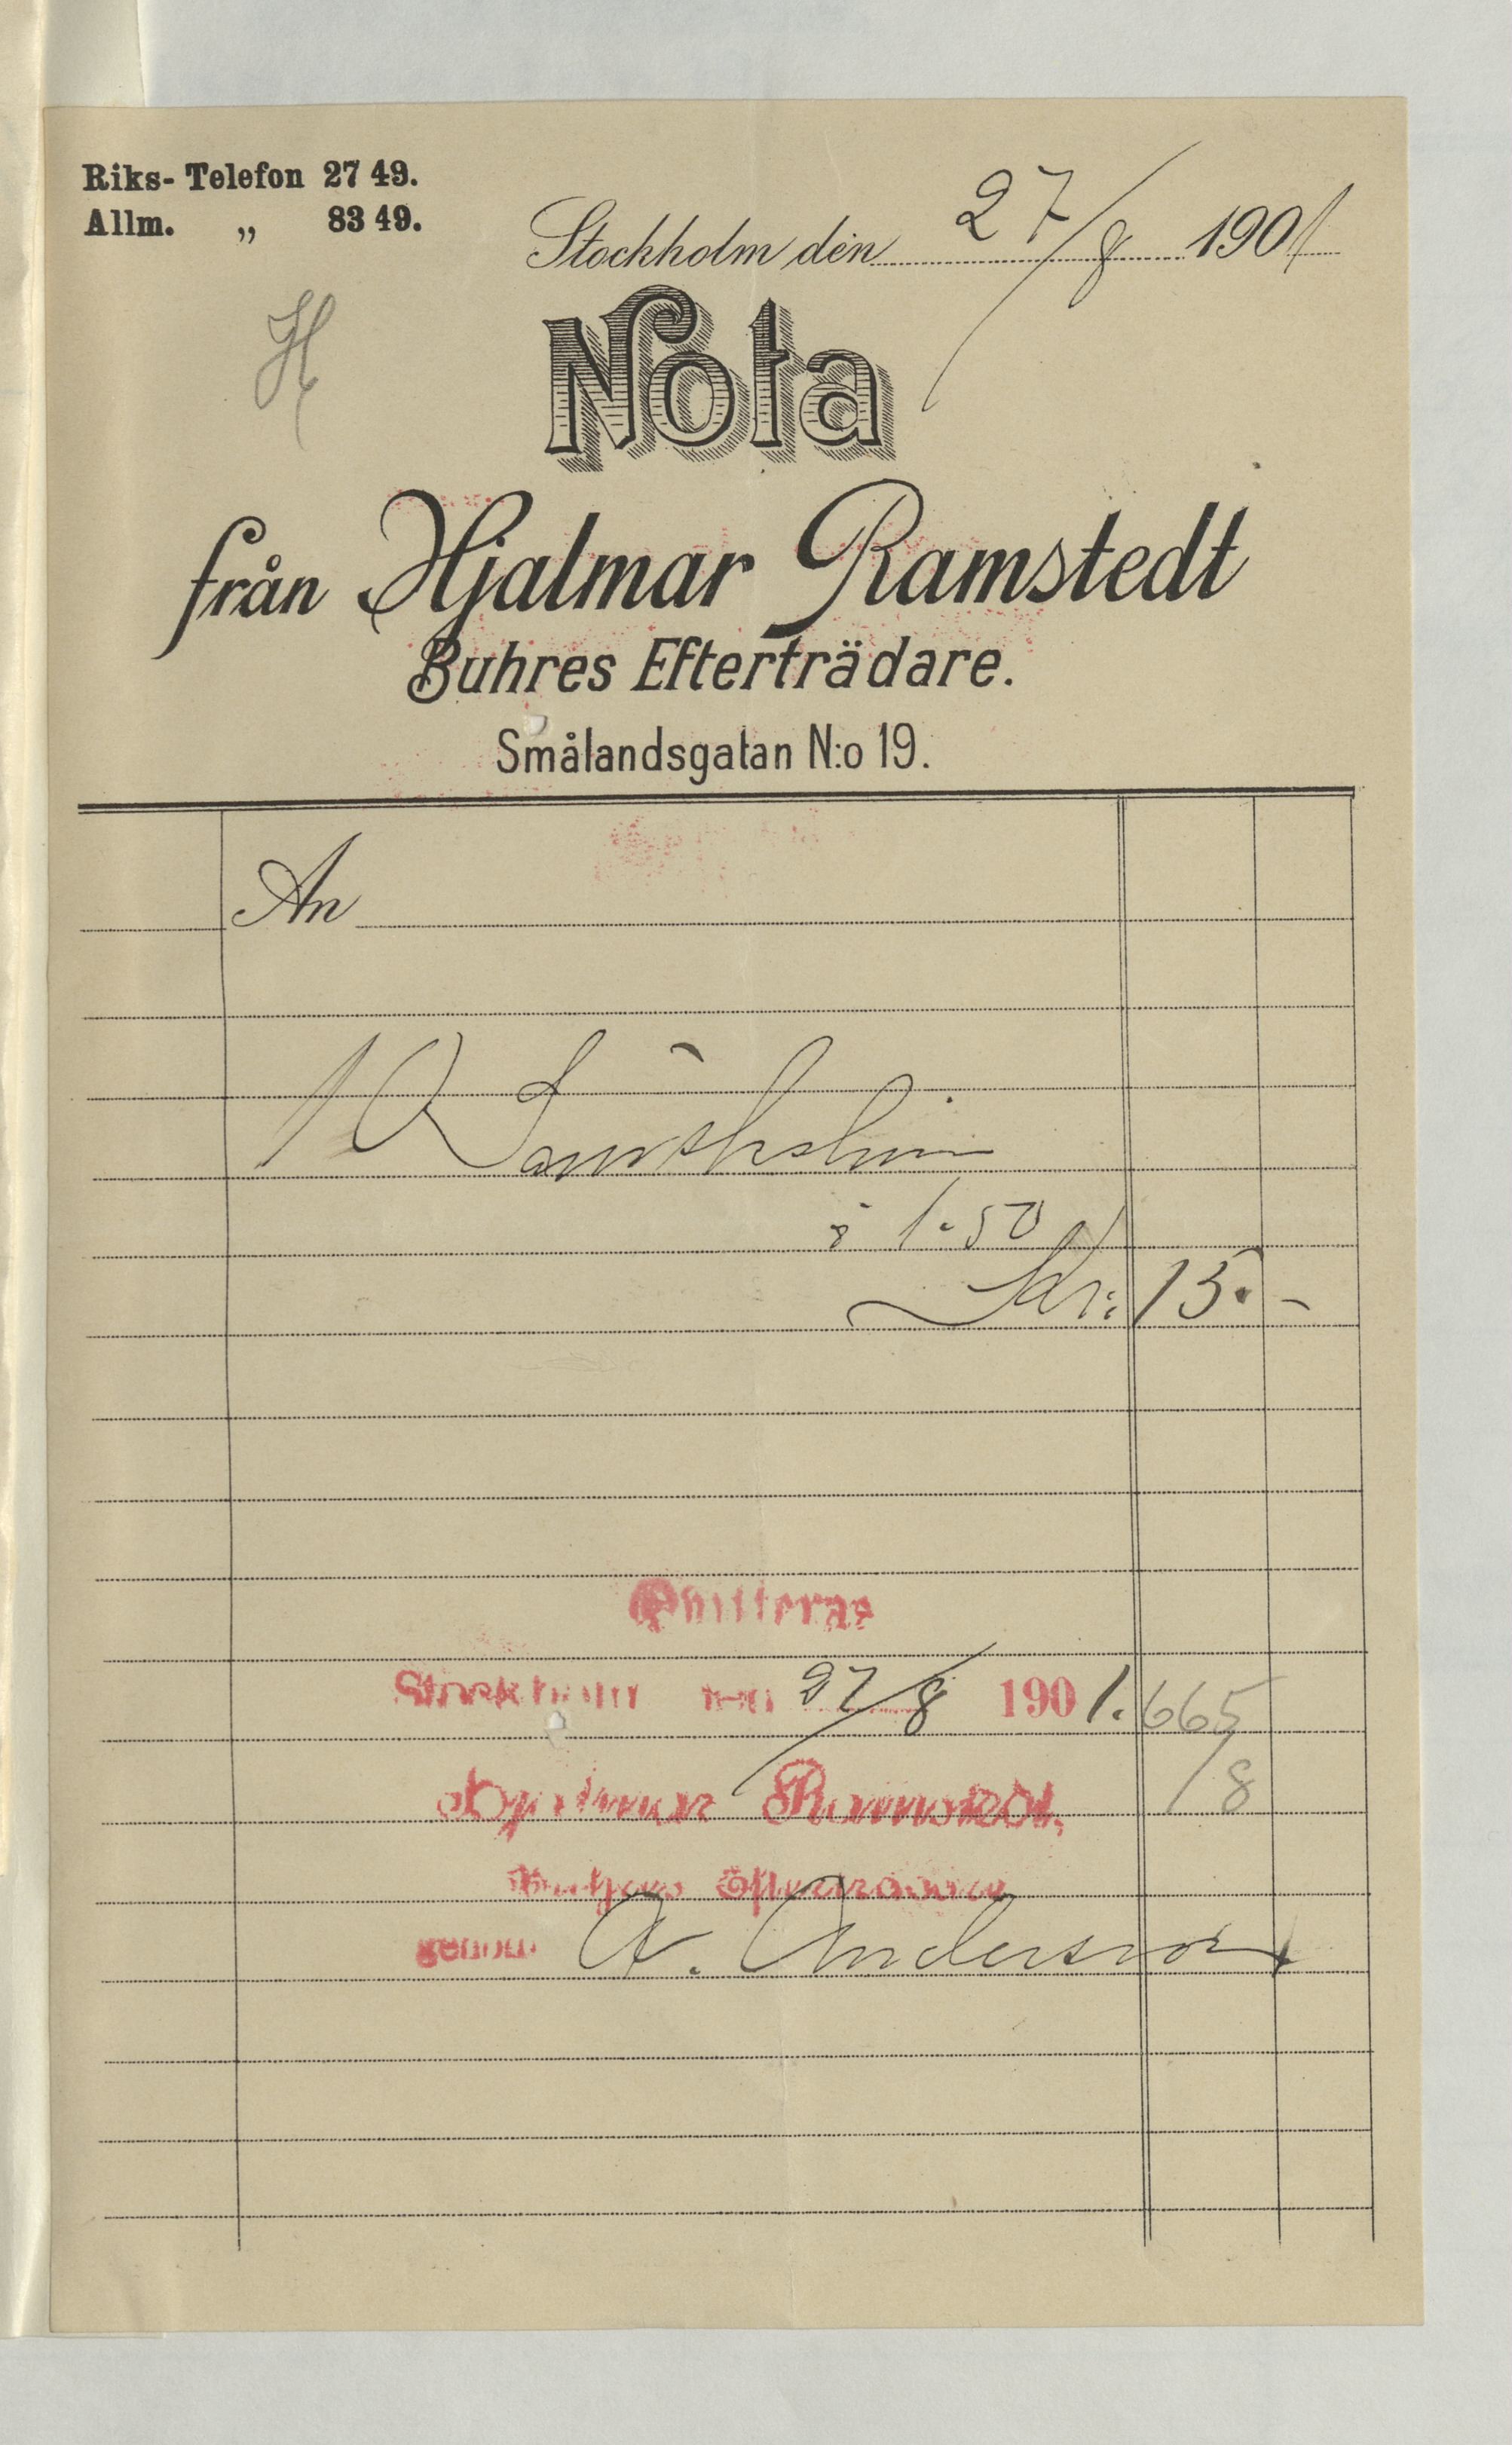 Riks-Telefon 27 49.
Allm. „ 83 49.
Stockholm den 27/8 1901
H
Nota
från Hjalmar Ramstedt
Buhres Efterträdare.
Smålandsgatan N:o 19.
An
10
à 1.50
Kr: 15.-
Qvitteras
Stockholm den 27/8 1901.
665
/8
Hjalmar Ramstedt.
Buhres Efterträdare
genom A. Andersson